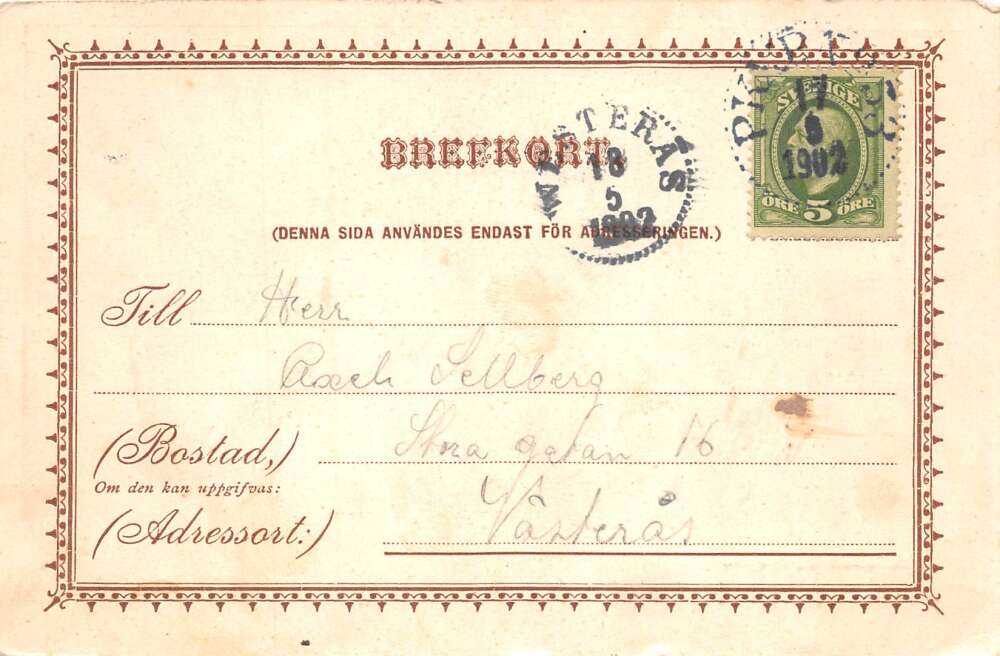 BREFKORT.
(DENNA SIDA ANVÄNDES ENDAST FÖR ADRESSERINGEN.)
WESTERÅS
18
5
1902
PKXP. Nº 53
17
5
1902
SVERIGE
ÖRE 5 ÖRE
Till Herr
Axel Sellberg
(Bostad,) Stora gatan 16
Om den kan uppgifvas:
(Adressort:) Västerås